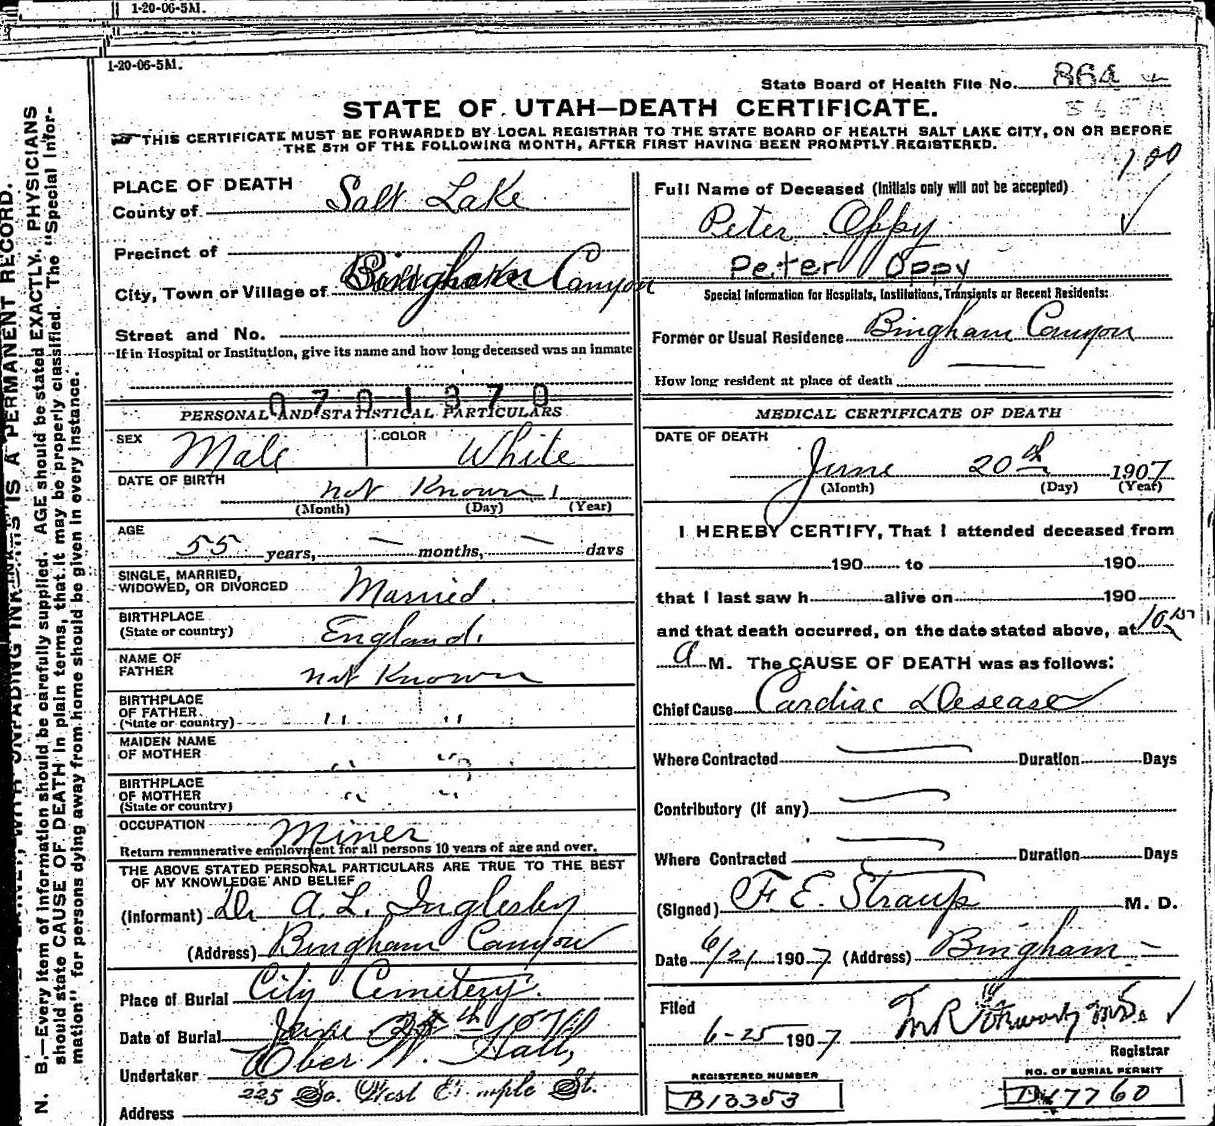 1-20-06-5M.
1-20-06-5M.
State Board of Health File No. 864
STATE OF UTAH—DEATH CERTIFICATE.
☞ THIS CERTIFICATE MUST BE FORWARDED BY LOCAL REGISTRAR TO THE STATE BOARD OF HEALTH SALT LAKE CITY, ON OR BEFORE
THE 5TH OF THE FOLLOWING MONTH, AFTER FIRST HAVING BEEN PROMPTLY REGISTERED.
N. B.—Every item of information should be carefully supplied. AGE should be stated EXACTLY. PHYSICIANS
should state CAUSE OF DEATH in plain terms, that it may be properly classified. The "Special Infor-
mation" for persons dying away from home should be given in every instance.
IS A PERMANENT RECORD.
PLACE OF DEATH
County of Salt Lake
Precinct of
City, Town or Village of Bingham Canyon
Street and No.
If in Hospital or Institution, give its name and how long deceased was an inmate
0701370
PERSONAL AND STATISTICAL PARTICULARS
SEX Male COLOR White
DATE OF BIRTH not Known 1
(Month) (Day) (Year)
AGE
55 years, — months, — days
SINGLE, MARRIED,
WIDOWED, OR DIVORCED Married.
BIRTHPLACE
(State or country) England.
NAME OF
FATHER not Known
BIRTHPLACE
OF FATHER
(State or country) " "
MAIDEN NAME
OF MOTHER " "
BIRTHPLACE
OF MOTHER
(State or country) " "
OCCUPATION Miner
Return remunerative employment for all persons 10 years of age and over.
THE ABOVE STATED PERSONAL PARTICULARS ARE TRUE TO THE BEST
OF MY KNOWLEDGE AND BELIEF
(Informant) Dr A. L. Inglesby
(Address) Bingham Canyon
Place of Burial City Cemetery.
Date of Burial June
Undertaker Eber W. Hall,
225 So. West Temple St.
Address
Full Name of Deceased (Initials only will not be accepted)
Peter Oppy
Peter Oppy
Special Information for Hospitals, Institutions, Transients or Recent Residents:
Former or Usual Residence Bingham Canyon
How long resident at place of death
MEDICAL CERTIFICATE OF DEATH
DATE OF DEATH
June 20th 1907
(Month) (Day) (Year)
I HEREBY CERTIFY, That I attended deceased from
190 to 190
that I last saw h alive on 190
and that death occurred, on the date stated above, at 10 15
a M. The CAUSE OF DEATH was as follows:
Chief Cause Cardiac Desease
Where Contracted — Duration Days
Contributory (If any) —
Where Contracted — Duration Days
(Signed) F. E. Straup M. D.
Date 6/21 1907 (Address) Bingham -
Filed
6-25 1907
Registrar
REGISTERED NUMBER
B13353
NO. OF BURIAL PERMIT
D17760